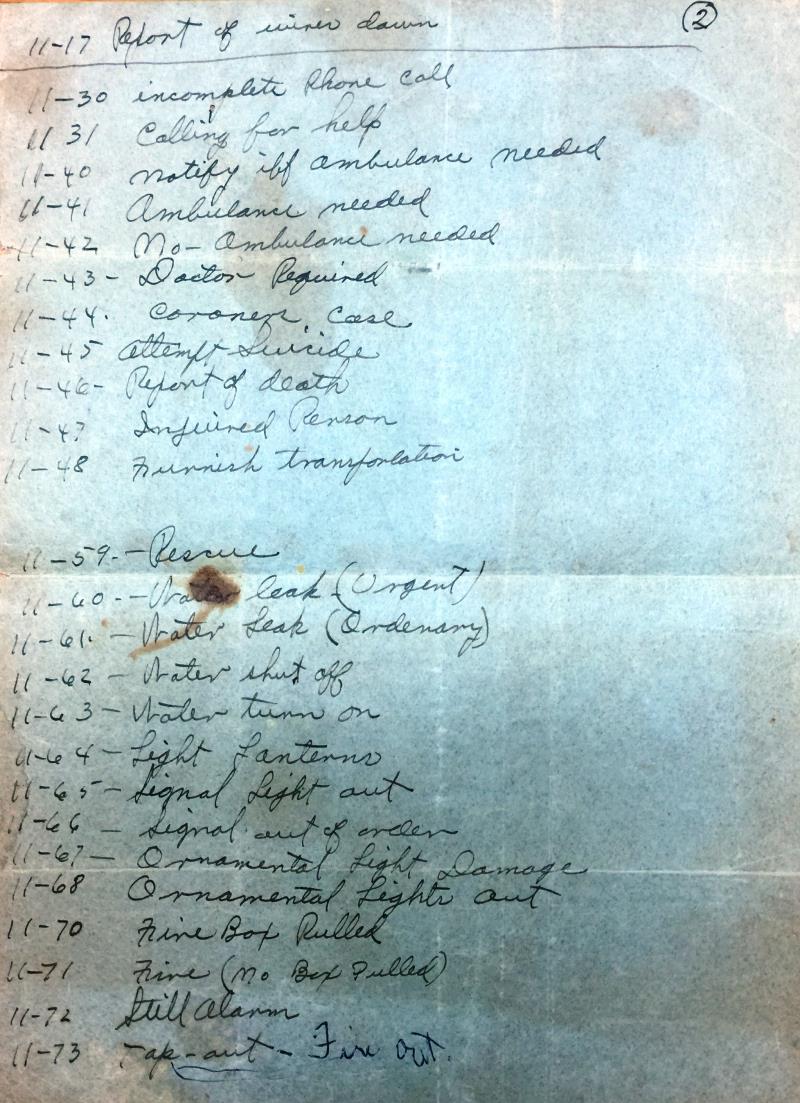 ②
11-17 Report of wires down
11-30 incomplete Phone call
11 31 Calling for help
11-40 notify ibf ambulance needed
11-41 Ambulance needed
11-42 No- Ambulance needed
11-43- Doctor Required
11-44. Coroners Case
11-45 attempt Suicide
11-46- Report of death
11-47 Injuired Person
11-48 Furnish transportation
11-59.- Rescue
11-60-- Water leak (Urgent)
11-61. - Water Leak (Ordenary)
11-62 - Water shut off
11-63 - Water turn on
11-64 - Light Lanterns
11-65 - Signal Light out
11-66 - Signal out of order
11-67 - Ornamental Light Damage
11-68 Ornamental Lights out
11-70 Fire Box Pulled
11-71 Fire (No Box Pulled)
11-72 Still Alarm
11-73 Tap-out - Fire Out.